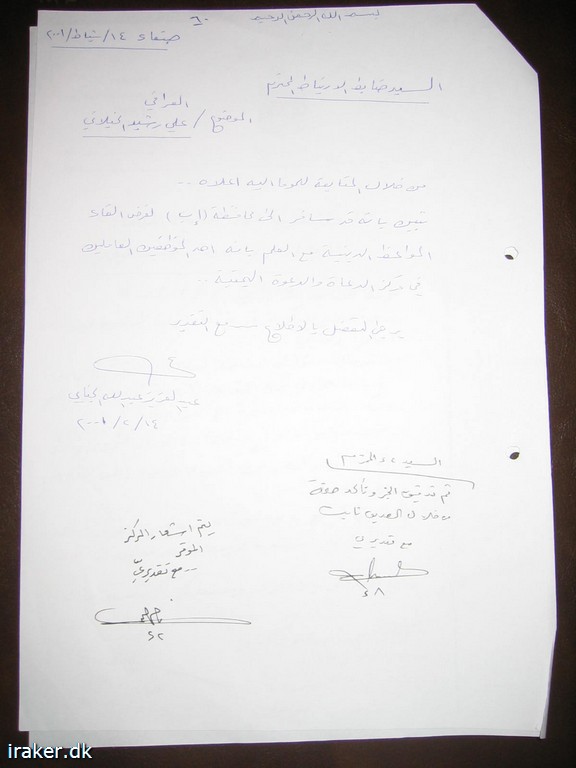 بسم الله الرحمن الرحيم
صنعاء ١٤/شباط/٢٠٠١
السيد ضابط الارتباط المحترم
العراقي
الموضوع / علي رشيد الجيلاني
من خلال المتابعة للموما اليه اعلاه ..
تبين بانه قد سافر الى محافظة (إب) لغرض القاء
المواعظ الدينية مع العلم بانه احد الموظفين العاملين
في مركز الدعاة والدعوة اليمنية ..
يرجى التفضل بالاطلاع ... مع التقدير
عبدالله
١٤/٢/٢٠٠١
السيد المحترم
تم تدقيق الخبر وتأكد صحته
من خلال الصديق ثابت
مع تقديري
٤٨
يتم اشعار المركز
الموقر
.. مع تقديري
٤٢
iraker.dk